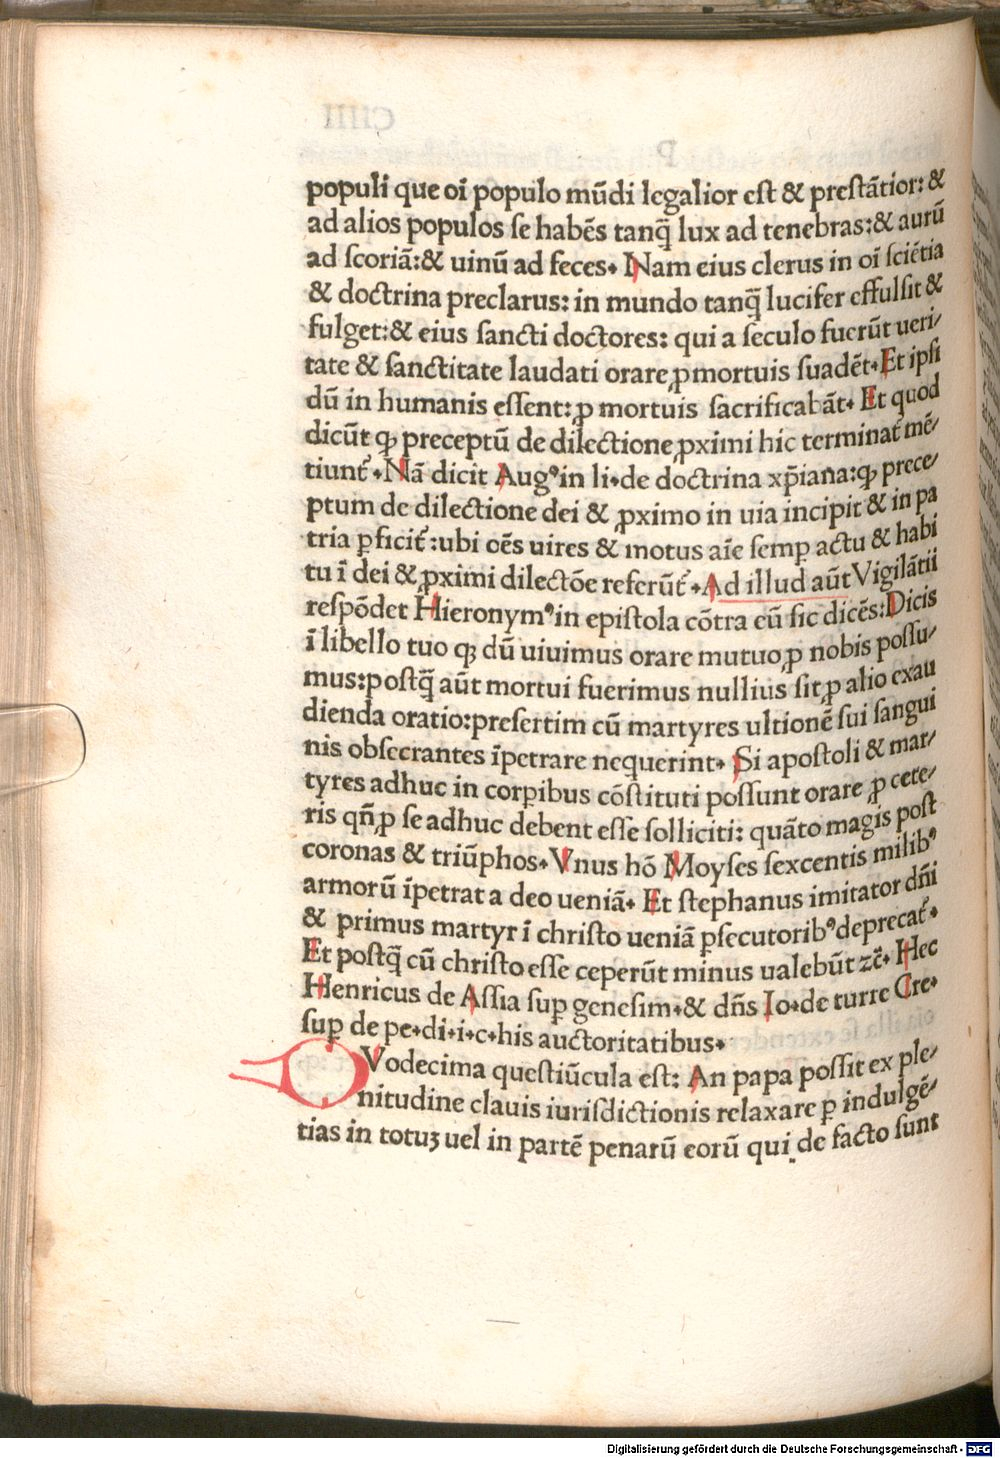 populi que oī populo mūdi legalior eſt & preſtātior: &
ad alios populos ſe habēs tanq̄ lux ad tenebras:& aurū
ad ſcoriā:& uinū ad feces. Nam eius clerus in oī ſciētia
& doctrina preclarus: in mundo tanq̄ lucifer effulſit &
fulget:& eius ſancti doctores: qui a ſeculo fuerūt ueri/
tate & ſanctitate laudati orare ꝓ mortuis ſuadēt. Et ipſi
dū in humanis eſſent: ꝓ mortuis ſacrificabāt. Et quod
dicūt ꝙ preceptū de dilectione ꝓximi hic terminat᷑ mē/
tiunt᷑. Nā dicit Augꝰ in li.de doctrina xp̄iana:ꝙ prece/
ptum de dilectione dei & ꝓximo in uia incipit & in pa
tria ꝑficit᷑ :ubi oēs uires & motus aīe ſemꝑ actu & habi
tu ī dei & ꝓximi dilectōe referūt᷑. Ad illud aūt Vigilātii
reſpōdet Hieronymꝰ in epiſtola cōtra eū ſic dicēs: Dicis
ī libello tuo ꝙ dū uiuimus orare mutuo ꝓ nobis poſſu/
mus:poſtq̄ aūt mortui fuerimus nullius ſit ꝓ alio exau
dienda oratio:preſertim cū martyres ultionē ſui ſangui
nis obſecrantes īpetrare nequerint. Si apoſtoli & mar/
tyres adhuc in corꝑibus cōſtituti poſſunt orare ꝓ cete/
ris qn̄ ꝓ ſe adhuc debent eſſe ſolliciti: quāto magis poſt
coronas & triūphos. Vnus hō Moyſes ſexcentis milibꝰ
armorū īpetrat a deo ueniā. Et ſtephanus imitator dn̄i
& primus martyr ī chriſto ueniā ꝑſecutoribꝰ deprecat᷑.
Et poſtq̄ cū chriſto eſſe ceperūt minus ualebūt zc̄. Hec
Henricus de Aſſia ſuꝑ geneſim.& dn̄s Io.de turre Cre.
ſuꝑ de pe.di.i.c.his auctoritatibus.
DVodecima queſtiūcula eſt: An papa poſſit ex ple/
nitudine clauis iuriſdictionis relaxare ꝑ indulgē/
tias in totuꝫ uel in partē penarū eorū qui de facto ſunt
Digitalisierung gefördert durch die Deutsche Forschungsgemeinschaft - DFG